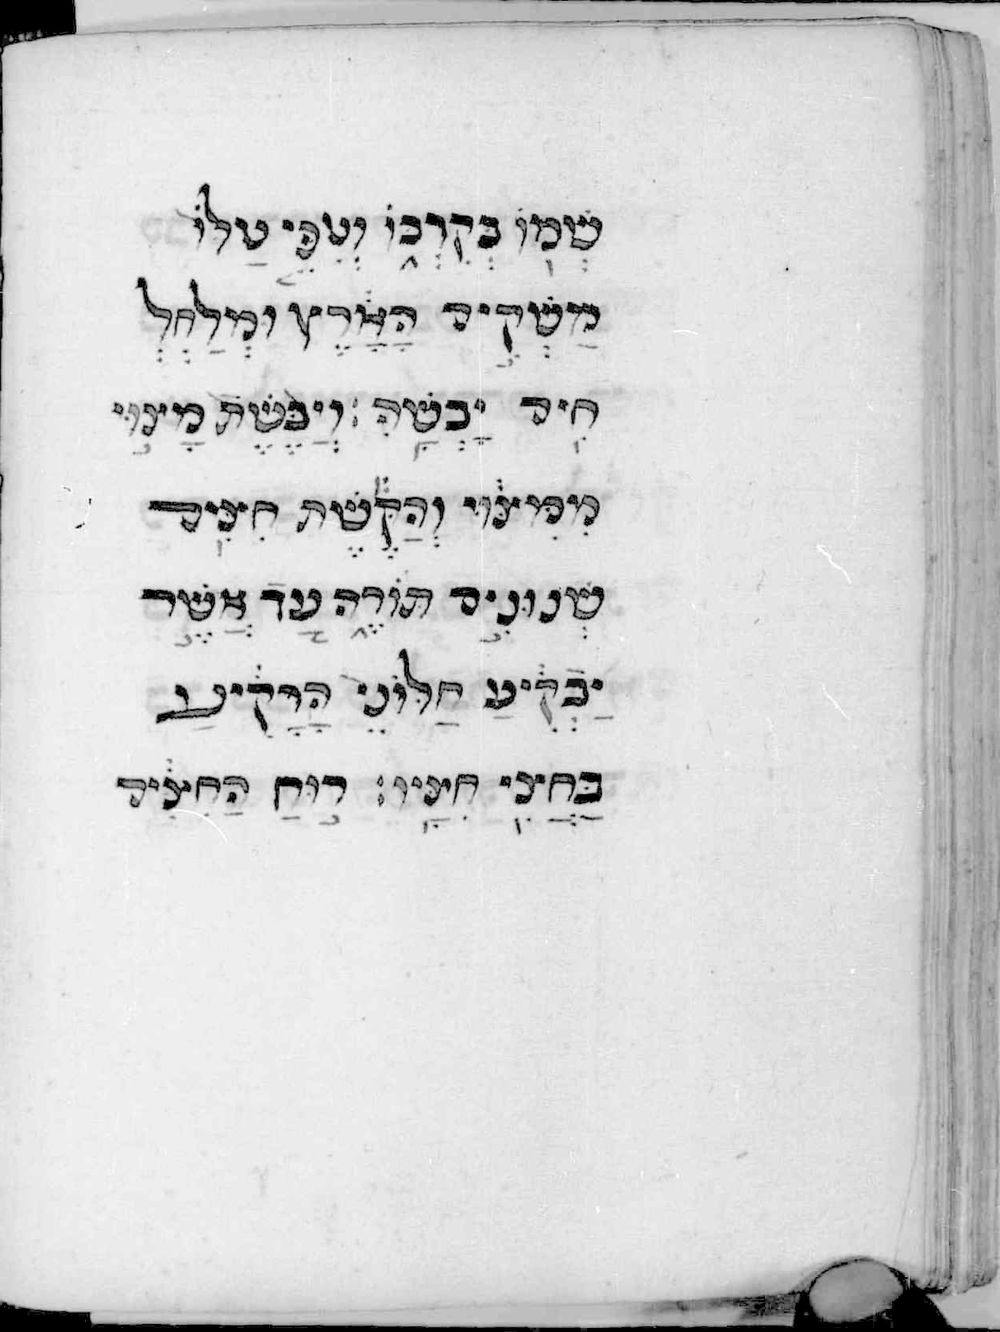 שְׁמוֹ בְּקִרְבּוֹ טַלּוֹ
מַשְׁקִים הָאָרֶץ וּמְלַחְלְ
חִים יָבְשָׁהּ: וְיַבֶּשֶׁת מָצוּי
מִמִּצּוּי וְהַקֶּשֶׁת חִצִּים
שְׁנוּנִים תּוֹרֶה עַד אֲשֶׁר
יַבְקִיעַ חַלּוֹנֵי הָרָקִיעַ
בַּחֲצִי חִצָּיו: רוּחַ הַחִצִּים